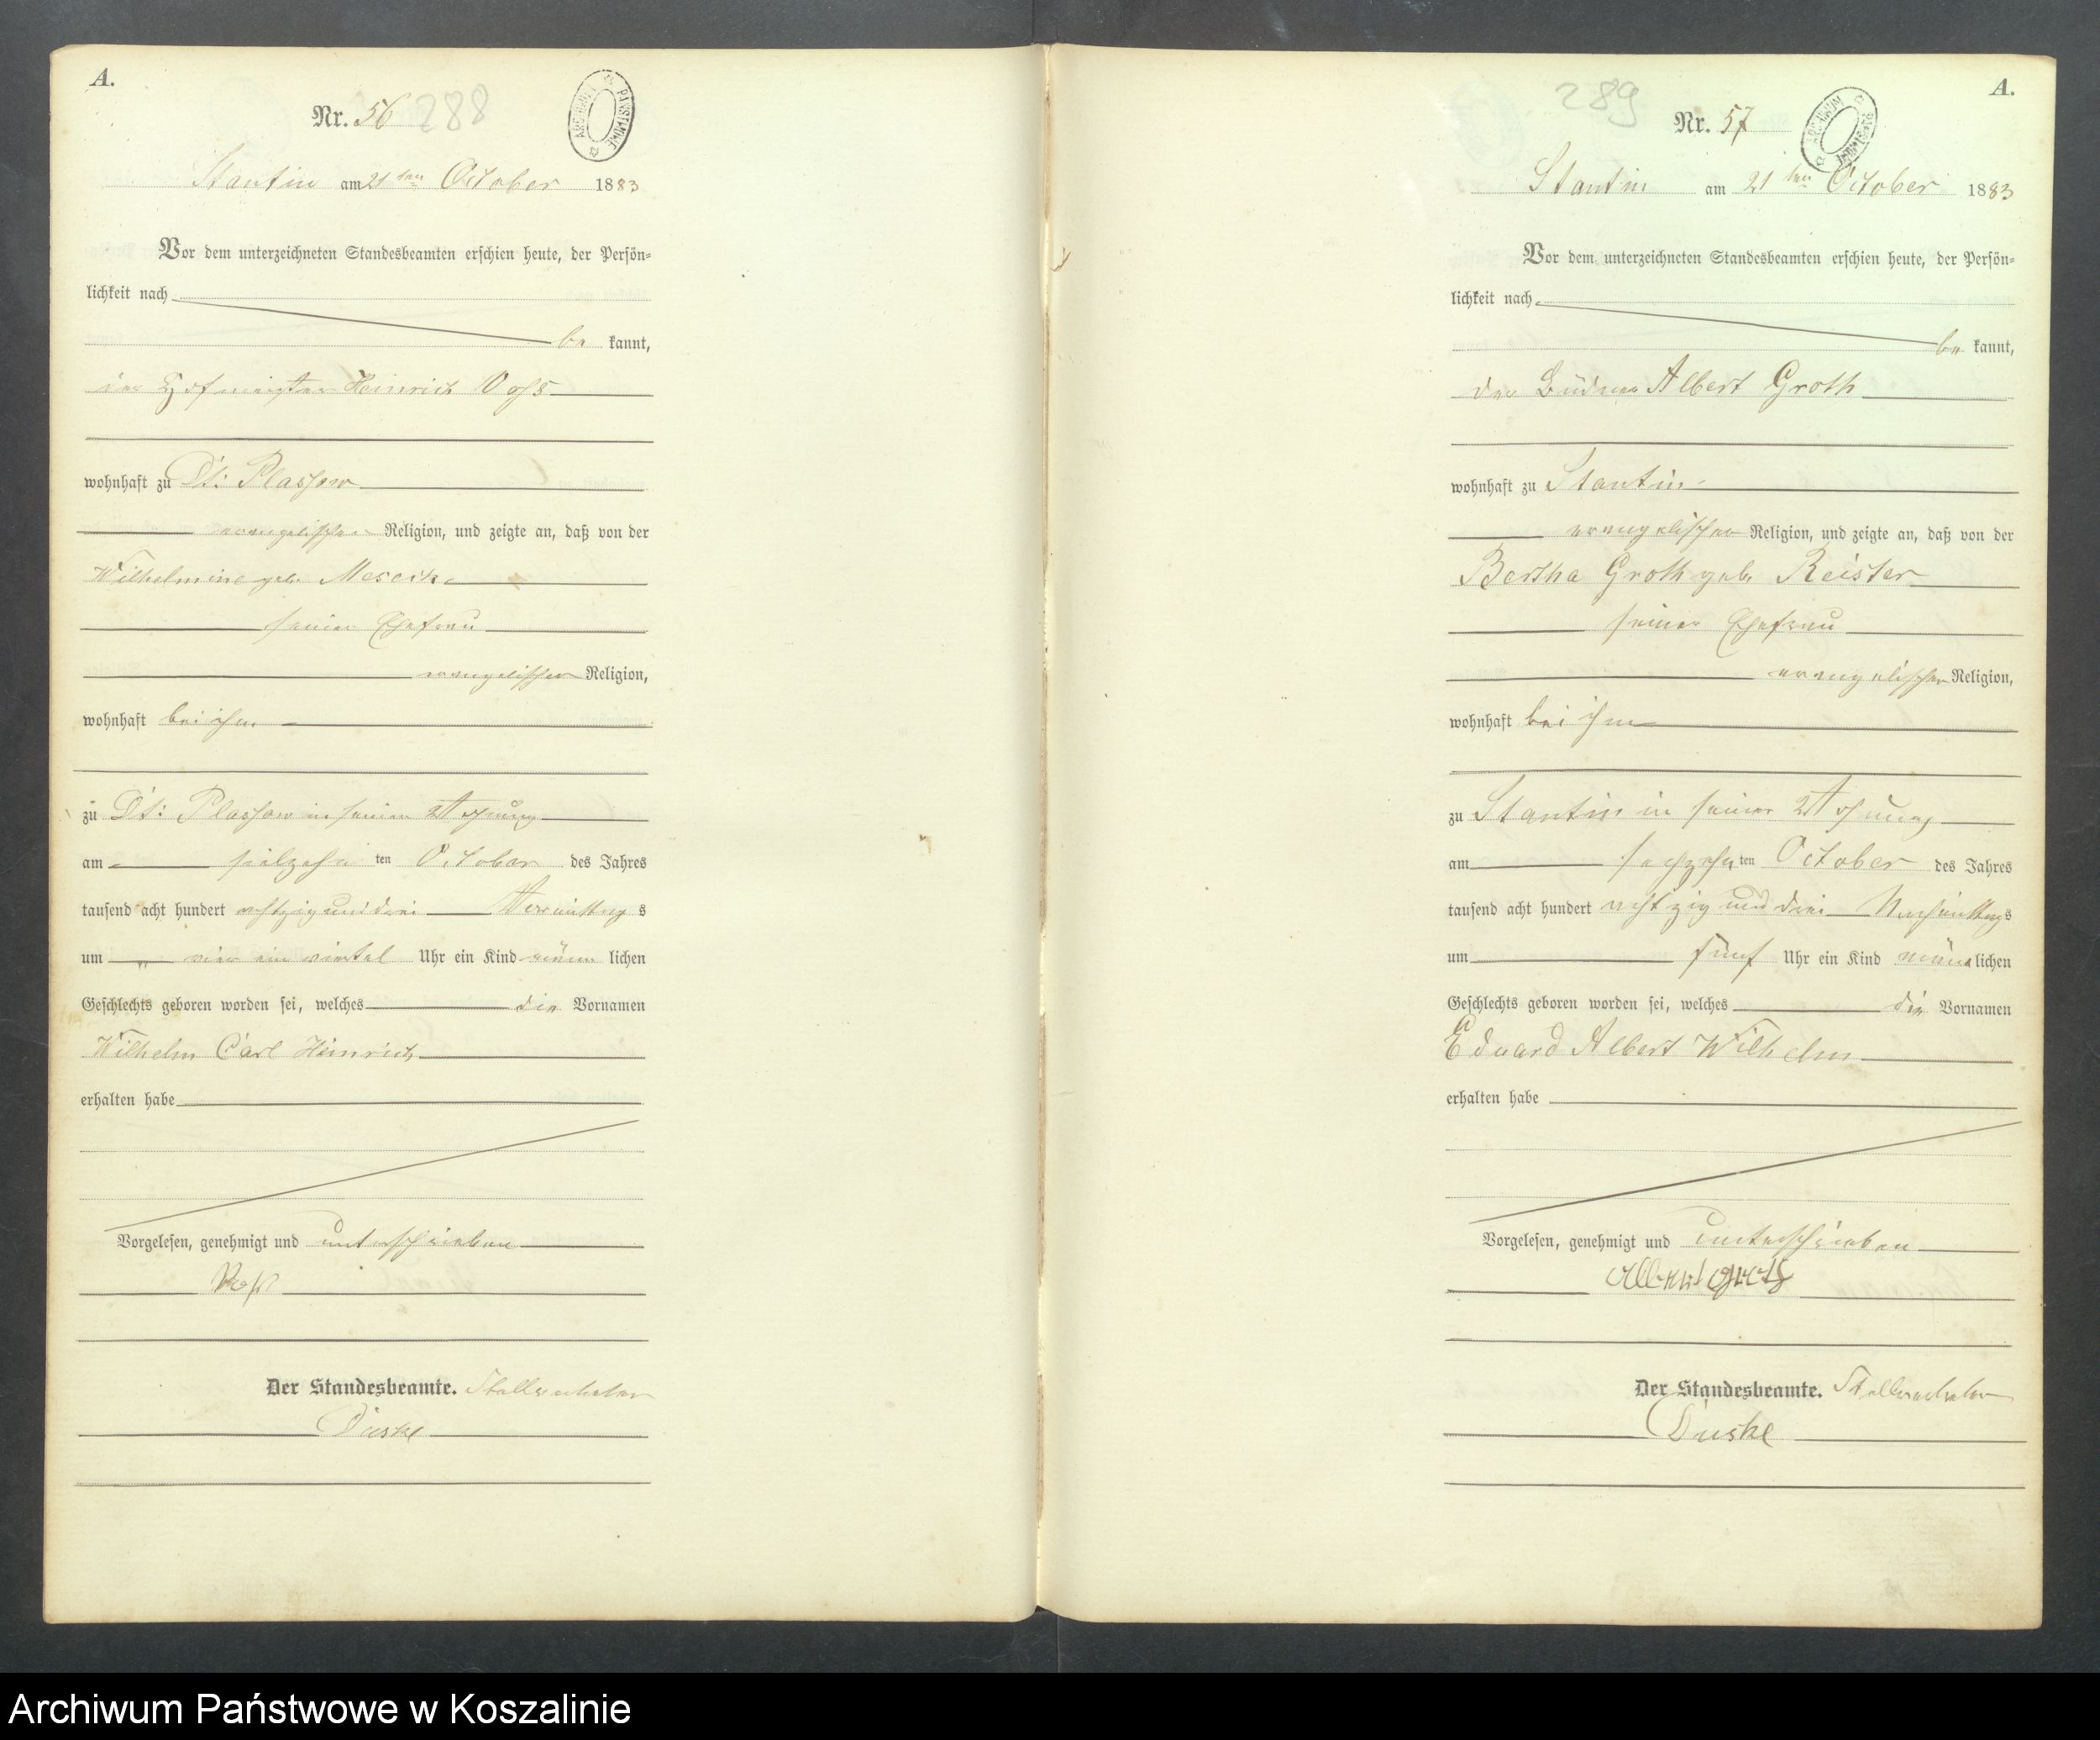 A.
Nr. 56 288
ARCHIWUM PAŃSTWOWE
Stantin am 21ten October 1883
Vor dem unterzeichneten Standesbeamten erschien heute, der Persön-
lichkeit nach
be kannt,
der Hofmeister Heinrich Voß
wohnhaft zu Dt: Plassow
evangelischer Religion, und zeigte an, daß von der
Wilhelmine geb.
seiner Ehefrau
evangelischer Religion,
wohnhaft bei ihm
zu Dt: Plassow in seiner Wohnung
am ten October des Jahres
tausend acht hundert achtzig und drei Vormittags
um vier ein viertel Uhr ein Kind männ lichen
Geschlechts geboren worden sei, welches die Vornamen
Wilhelm Carl Heinrich
erhalten habe
Vorgelesen, genehmigt und unterschrieben
Voß
Der Standesbeamte. Stellvertreter
Duske
289
A.
Nr. 57
ARCHIWUM PAŃSTWOWE
Stantin am 21ten October 1883
Vor dem unterzeichneten Standesbeamten erschien heute, der Persön-
lichkeit nach
be kannt,
der Büdner Albert Groth
wohnhaft zu Stantin
evangelischer Religion, und zeigte an, daß von der
Bertha Groth geb. Reister
seiner Ehefrau
evangelischer Religion,
wohnhaft bei ihm
zu Stantin in seiner Wohnung
am sechzehn ten October des Jahres
tausend acht hundert achtzig und drei Nachmittags
um fünf Uhr ein Kind männ lichen
Geschlechts geboren worden sei, welches die Vornamen
Eduard Albert Wilhelm
erhalten habe
Vorgelesen, genehmigt und unterschrieben
Albert Groth
Der Standesbeamte. Stellvertreter
Duske
Archiwum Państwowe w Koszalinie